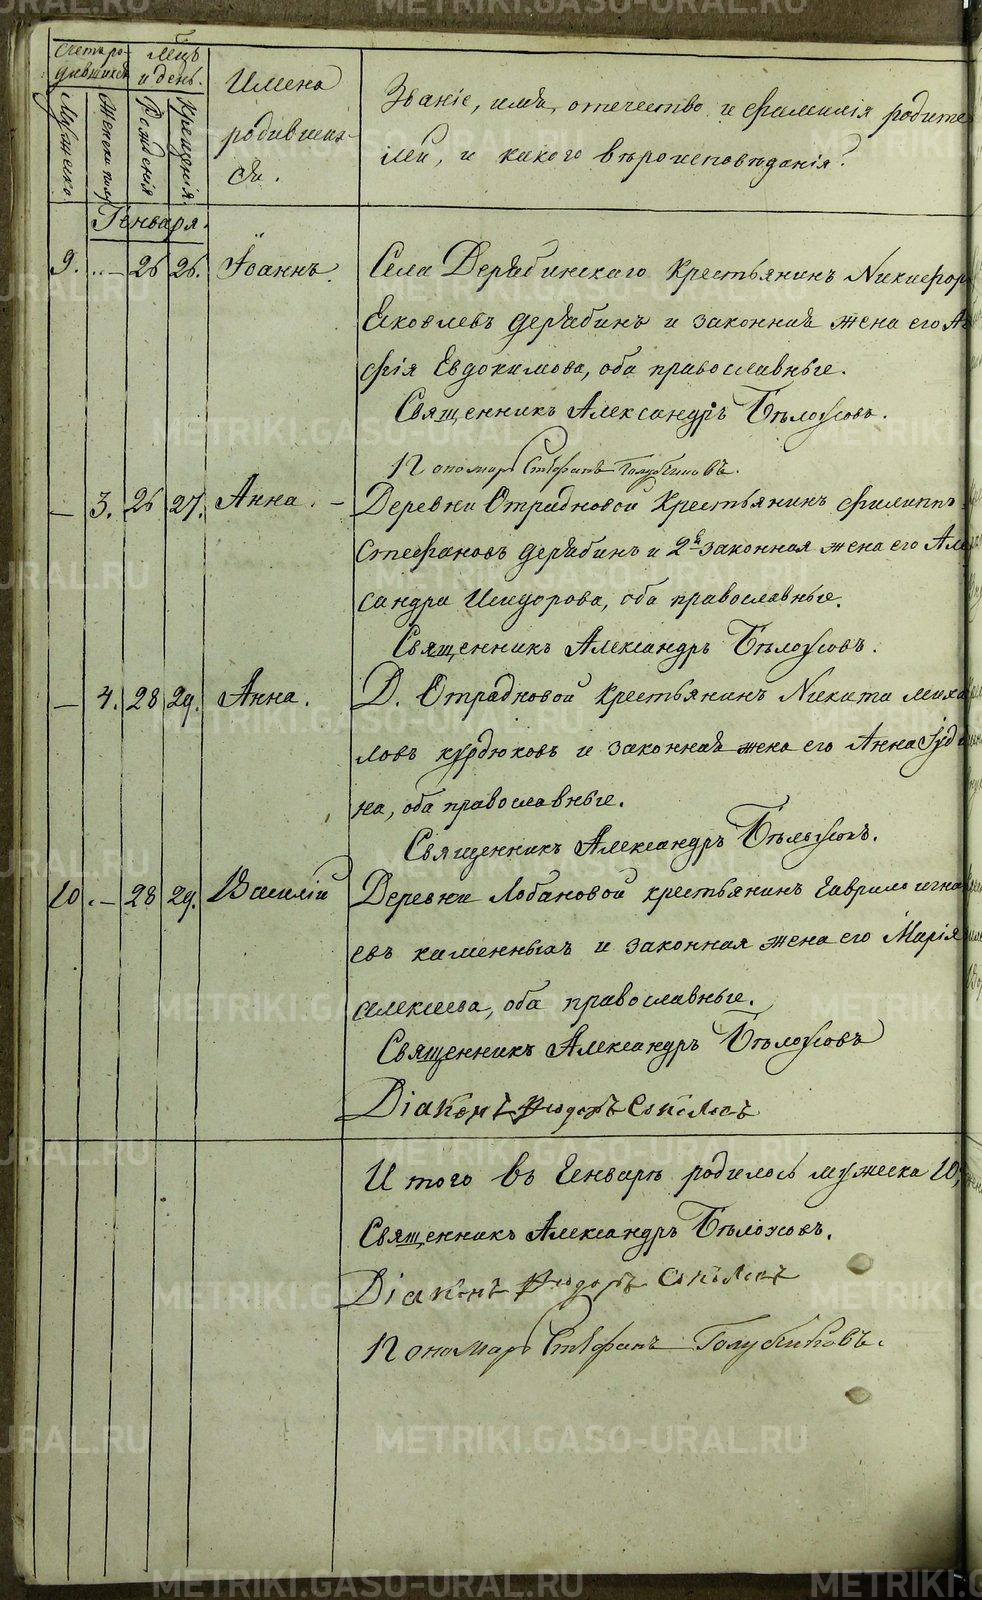 Счетъ ро-
дившихся
Мѣсяцъ
и день.
Мужеска
Женска полу
Рожденія
Крещенія
Имена
родивших-
ся.
Званіе, имя, отечество и фамилія родите
лей, и какого вѣроисповѣданія?
Генваря.
9. 26 26. Іоаннъ Села Дерябинскаго крестьянинъ Никифоръ
Яковлевъ дерябинъ и законная жена его А
фія Евдокимова, оба православные.
Священникъ Александръ Бѣлоусовъ.
Пономарь Стефанъ Голубчиковъ.
— 3. 26 27. Анна. — Деревни Отрадновой крестьянинъ филиппъ
стефановъ дерябинъ и 2я законная жена его Алек
сандра Исидорова, оба православные.
Священникъ Александръ Бѣлоусовъ.
— 4. 28 29. Анна. Д. Отрадновой крестьянинъ Никита миха
ловъ курдюковъ и законная жена его Анна Іуд
на, оба православные.
Священникъ Александръ Бѣлоусовъ.
10. — 28 29. Василій Деревни Лобановой крестьянинъ Гаврило игна
евъ каменныхъ и законная жена его Марія
алексиева, оба православные.
Священникъ Александръ Бѣлоусовъ
Діаконъ Ѳеодоръ Соколовъ
И того въ Генварѣ родилось мужеска 10,
Священникъ Александръ Бѣлоусовъ.
Діаконъ Ѳеодоръ Соколовъ
Пономарь Стефанъ Голубчиковъ.
METRIKI.GASO-URAL.RU